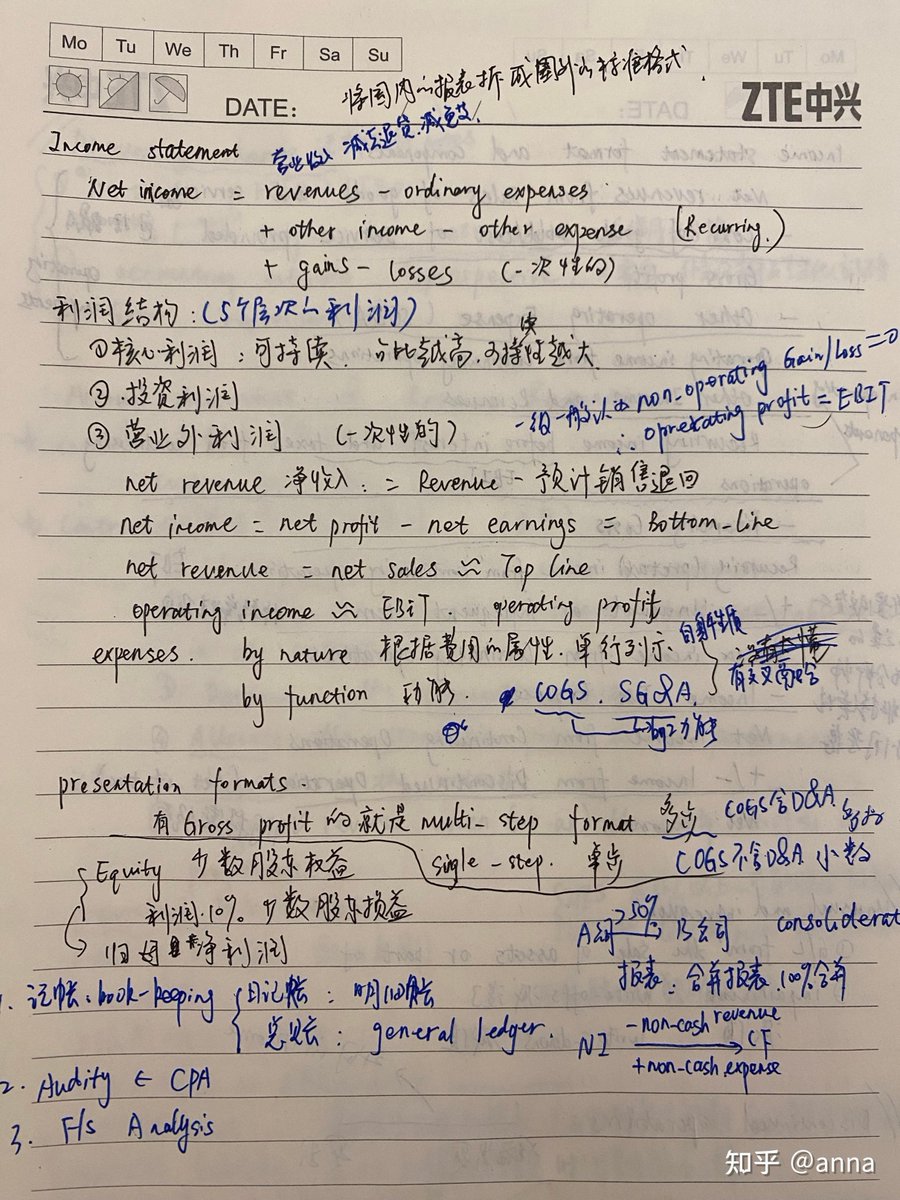 Mo Tu We Th Fr Sa Su
DATE:
将国内的报表拆成国外的标准格式.
ZTE中兴
营业收入 减去退货.减
Income statement
Net income = revenues - ordinary expenses
+ other income - other expense (Recurring)
+ gains - losses (一次性的)
利润结构:(5个层次的利润)
①核心利润:可持续.占比越高,可持续性越大.
②投资利润
一级一般认为non-operating Gain/Loss=0
③营业外利润 (一次性的)
∴ opretating profit = EBIT
net revenue 净收入. = Revenue - 预计销售退回
net income = net profit - net earnings = Bottom-line
net revenue = net sales ≈ Top Line
operating income ≈ EBIT. operating profit
expenses. by nature 根据费用的属性.单行列示. 自身性质
by function 功能. COGS. SG&A. 有交叉
presentation formats.
有Gross profit的就是multi-step format 多步 COGS含D&A
Equity 少数股东权益 single-step. 单步 COGS不含D&A 小数
利润.10%. 少数股东损益
归母净利润
A公司 >50% B公司 consoliderat
报表:合并报表.100%合并
1. 记帐:book-keeping 日记帐:
总账: general ledger.
NI -non-cash revenue +non-cash.expense CF
2. Audity ← CPA
3. F/s Analysis
知乎 @anna